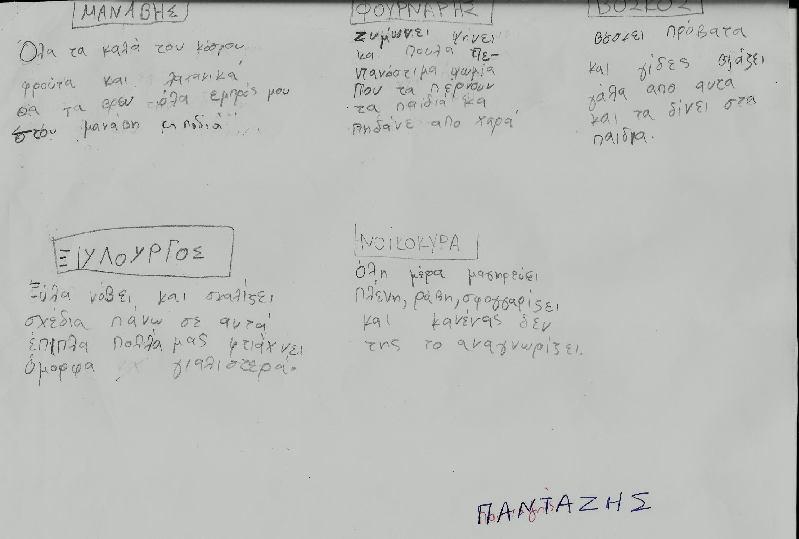 ΜΑΝΑΒΗΣ
Όλα τα καλά του κόσμου
φρούτα και λαχανικά
θα τα βρω όλα εμπρός μου
στον μανάβη
ΦΟΥΡΝΑΡΗΣ
Ζυμώνει ψήνει
και πουλά πε-
ντανόστιμα ψωμιά
που τα περνουν
τα παιδιά κα
πηδάνε από χαρά
ΒΟΣΚΟΣ
Βόσκει πρόβατα
και γίδες βγάζει
γάλα απο αυτα
και τα δίνει στα
παιδια.
ΞΥΛΟΥΡΓΟΣ
Ξύλα κόβει και σκαλίζει
σχέδια πάνω σε αυτά
έπιπλα πολλά μας φτιάχνει
όμορφα γιαλιστερά.
ΝΟΙΚΟΚΥΡΑ
Όλη μέρα μαγηρεύει
πλένη, ράβη, σφογγαρίζει
και κανένας δεν
της το αναγνωρίζει.
ΠΑΝΤΑΖΗΣ